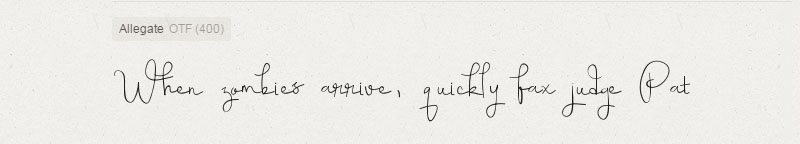 Allegate OTF (400)
When zombies arrive, quickly fax judge Pat